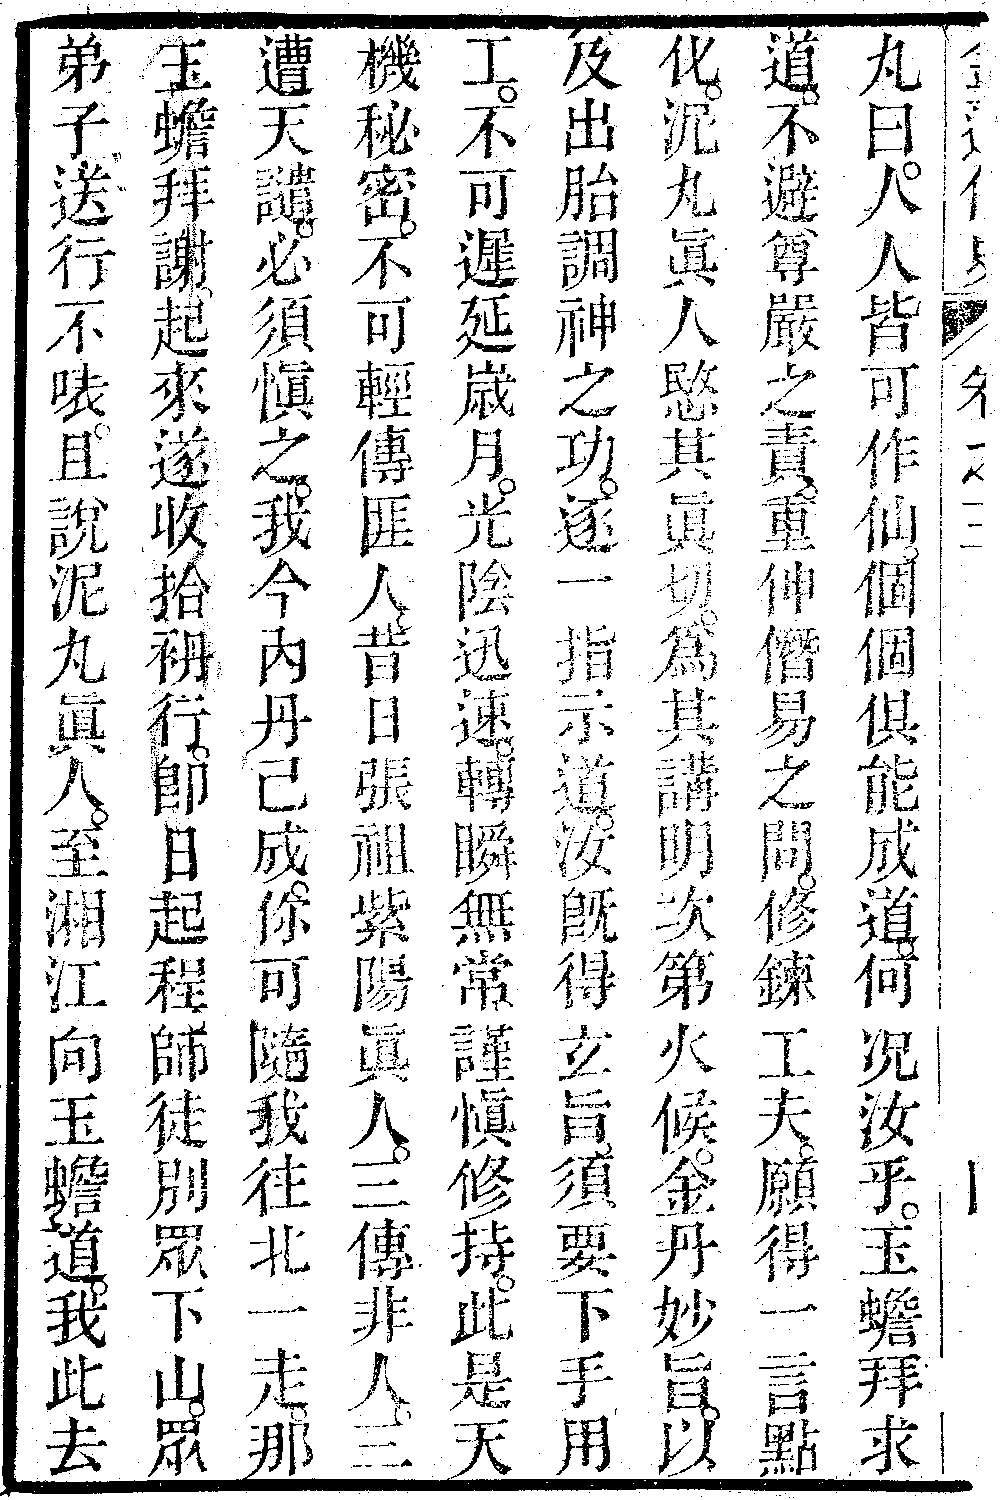 丸曰。人人皆可作仙。個個俱能成道。何况汝乎。玉蟾拜求
道。不避尊嚴之責。重伸僭易之問。修鍊工夫。願得一言點
化。泥丸眞人愍其眞切。爲其講明次第火候。金丹妙旨。以
及出胎調神之功。逐一指示道。汝既得玄旨。須要下手用
工。不可遲延歲月。光陰迅速。轉瞬無常。謹愼修持。此是天
機秘密。不可輕傳匪人。昔日張祖紫陽眞人。三傳非人。三
遭天譴。必須愼之。我今內丹己成。你可隨我往北一走。那
玉蟾拜謝。起來遂收拾裯行。卽日起程。師徒別眾下山。眾
弟子送行不表。且說泥丸眞人。至湘江向玉蟾道。我此去